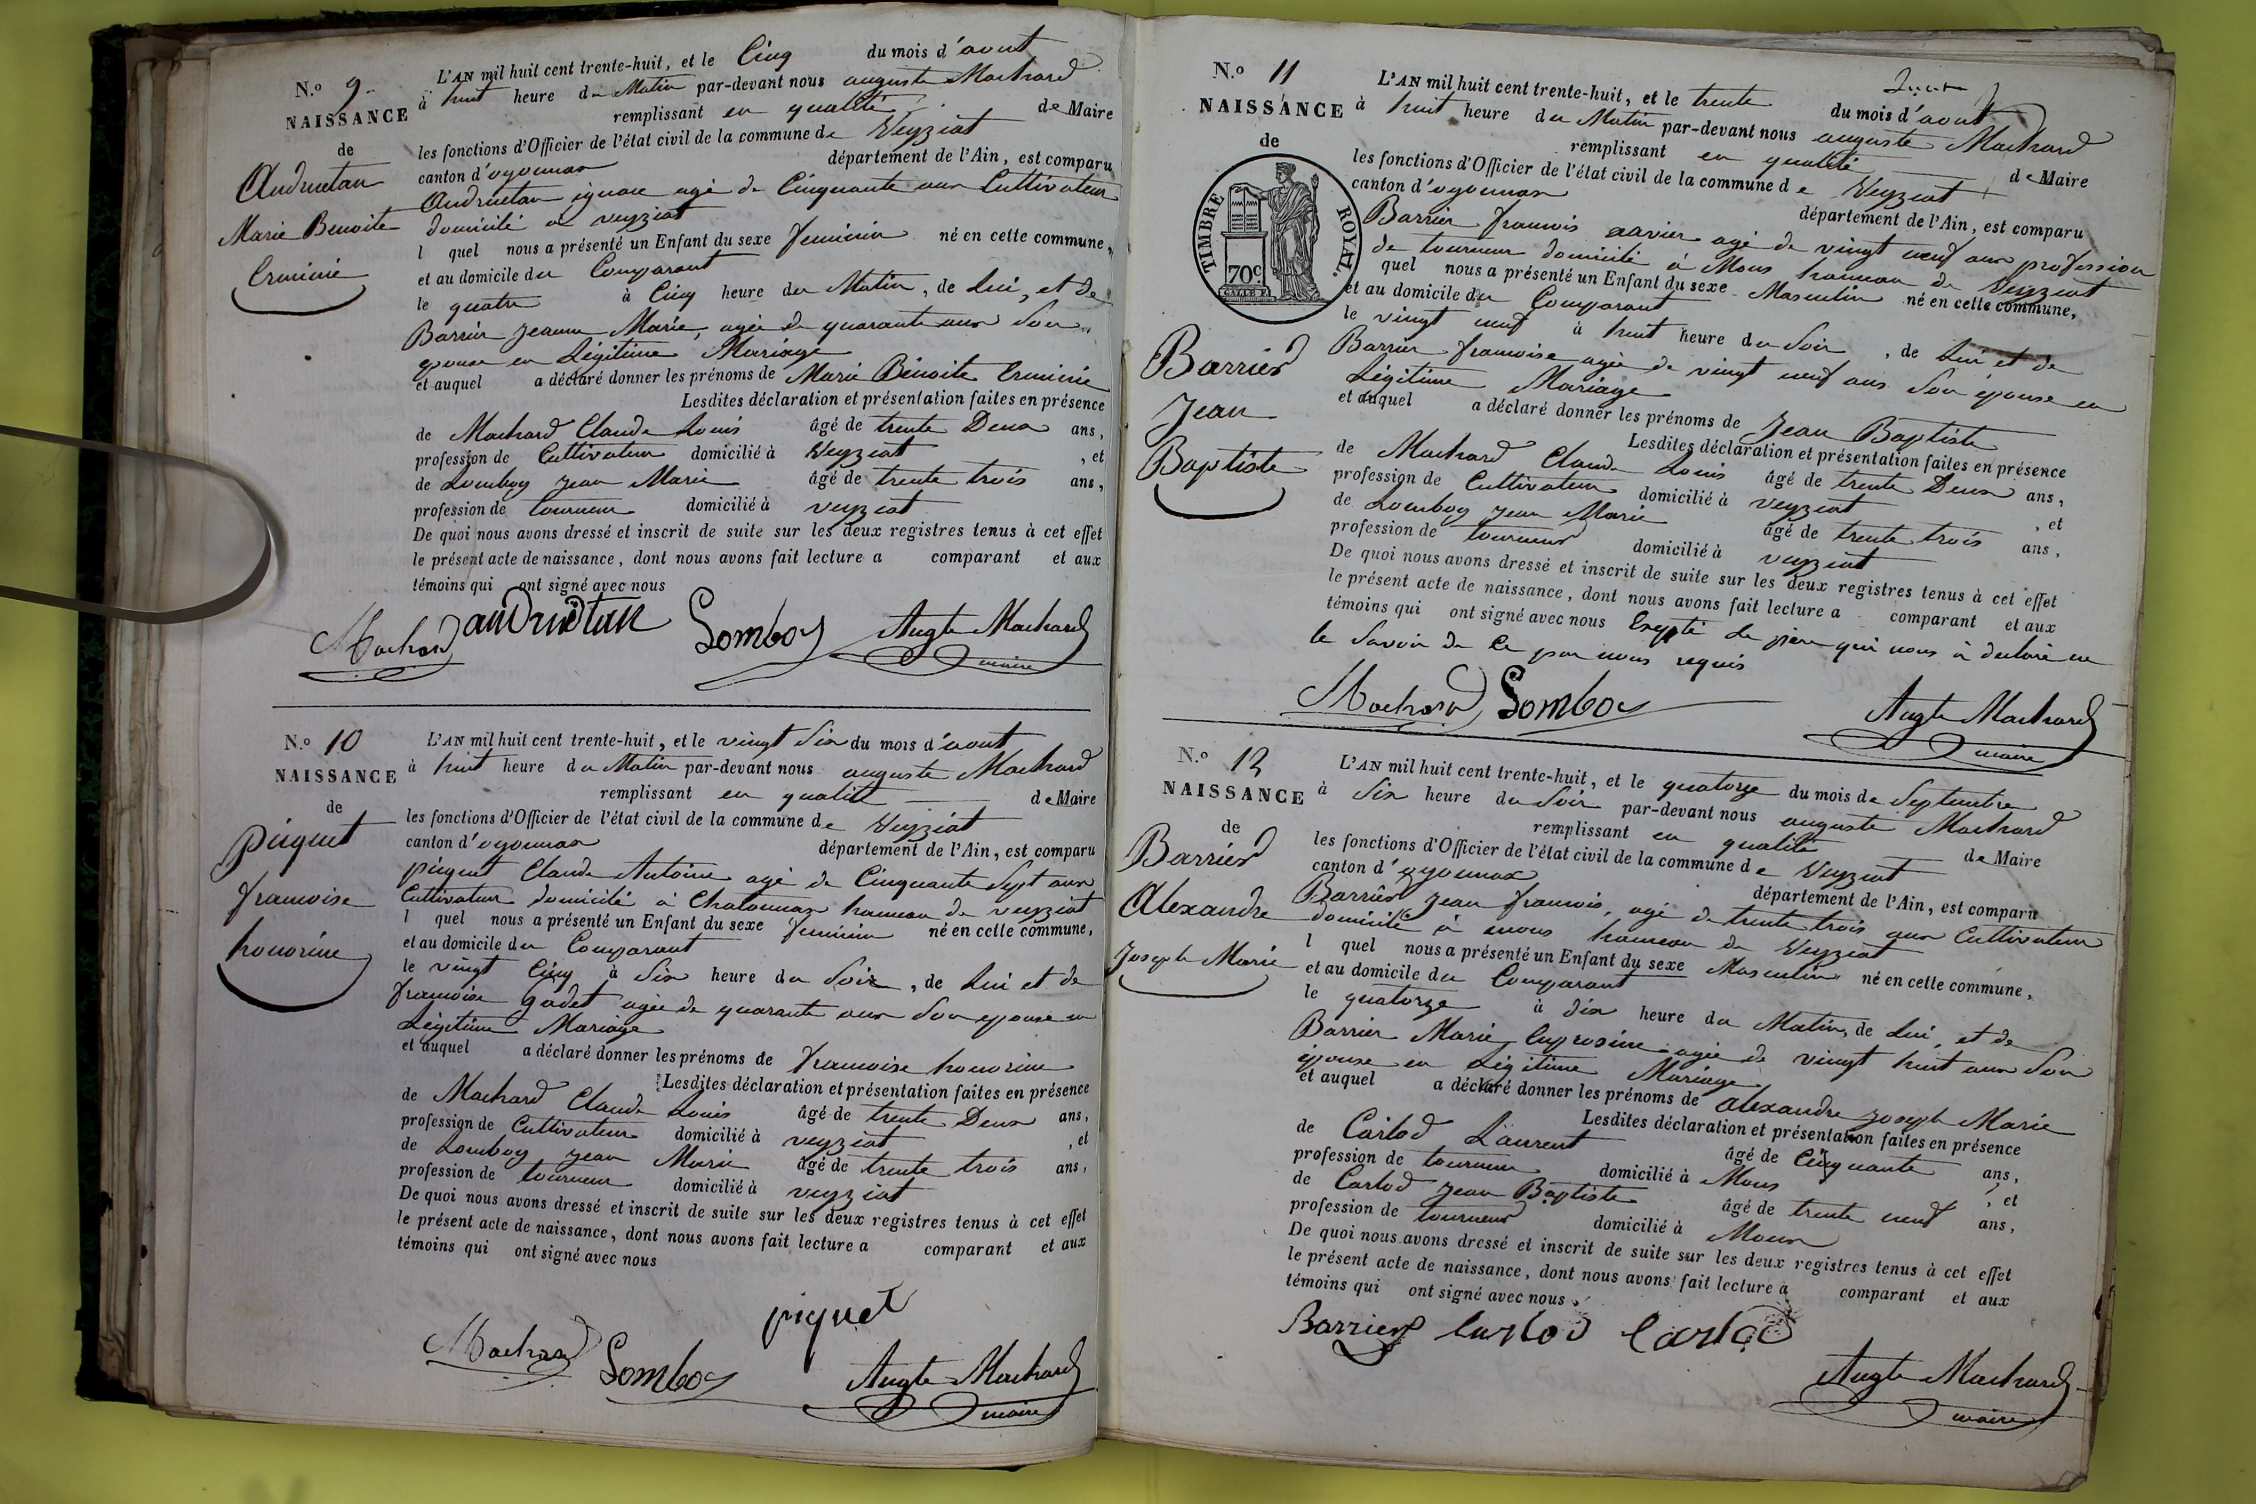 N.º 9
NAISSANCE
de
Andruetan
Marie Benoite
Erminie
L'AN mil huit cent trente-huit, et le Cinq du mois d'aout
à huit heure du Matin par-devant nous auguste Machard
remplissant en qualité de Maire
les fonctions d'Officier de l'état civil de la commune de Veyziat
canton d'oyonnax département de l'Ain, est comparu
Andruetan ignace agé de Cinquante ans Cultivateur
domicilié a veyziat
l quel nous a présenté un Enfant du sexe feminin né en cette commune,
et au domicile du Comparant
le quatre à Cinq heure du Matin, de Lui, et de
Barrier Jeanne Marie, agée de quarante ans Son
epouse en Légitime Mariage
et auquel a déclaré donner les prénoms de Marie Benoite Erminie
Lesdites déclaration et présentation faites en présence
de Machard Claude Louis âgé de trente Deux ans,
profession de Cultivateur domicilié à Veyziat , et
de Lomboy Jean Marie âgé de trente trois ans,
profession de tourneur domicilié à veyziat
De quoi nous avons dressé et inscrit de suite sur les deux registres tenus à cet effet
le présent acte de naissance, dont nous avons fait lecture a comparant et aux
témoins qui ont signé avec nous
Machard andruétan Lomboy Augte Machard
maire
N.º 10
NAISSANCE
de
piquet
francoise
honorine
L'AN mil huit cent trente-huit, et le vingt Six du mois d'aout
à huit heure du Matin par-devant nous auguste Machard
remplissant en qualité de Maire
les fonctions d'Officier de l'état civil de la commune de Veyziat
canton d'oyonnax département de l'Ain, est comparu
piquet Claude Antoine agé de Cinquante Sept ans
Cultivateur domicilié à Chatonnax hameau de veyziat
l quel nous a présenté un Enfant du sexe feminin né en cette commune,
et au domicile du Comparant
le vingt Cinq à Six heure du Soir, de Lui et de
francoise godet agée de quarante ans Son epouse en
Légitime Mariage
et auquel a déclaré donner les prénoms de francoise honorine
Lesdites déclaration et présentation faites en présence
de Machard Claude Louis âgé de trente Deux ans,
profession de Cultivateur domicilié à veyziat , et
de Lomboy Jean Marie âgé de trente trois ans,
profession de tourneur domicilié à veyziat
De quoi nous avons dressé et inscrit de suite sur les deux registres tenus à cet effet
le présent acte de naissance, dont nous avons fait lecture a comparant et aux
témoins qui ont signé avec nous
piquet
Machard Lomboy Augte Machard
maire
N.º 11
NAISSANCE
de
TIMBRE ROYAL.
70c
Barrier
Jean
Baptiste
L'AN mil huit cent trente-huit, et le trente du mois d'aout
à huit heure du Matin par-devant nous auguste Machard
remplissant en qualité de Maire
les fonctions d'Officier de l'état civil de la commune de Veyziat
canton d'oyonnax département de l'Ain, est comparu
Barrier francois xavier agé de vingt neuf ans profession
de tourneur domicilié à Mons hameau de Veyziat
quel nous a présenté un Enfant du sexe Masculin né en cette commune,
et au domicile du Comparant
le vingt neuf à huit heure du Soir , de Lui et de
Barrier francoise agée de vingt neuf ans Son épouse en
Légitime Mariage
et auquel a déclaré donner les prénoms de Jean Baptiste
Lesdites déclaration et présentation faites en présence
de Machard Claude Louis âgé de trente Deux ans,
profession de Cultivateur domicilié à veyziat , et
de Lomboy Jean Marie âgé de trente trois ans,
profession de tourneur domicilié à veyziat
De quoi nous avons dressé et inscrit de suite sur les deux registres tenus à cet effet
le présent acte de naissance, dont nous avons fait lecture a comparant et aux
témoins qui ont signé avec nous Excepté Le père qui nous à declaré ne
le Savoir de Ce par nous requis
Machard Lomboy Augte Machard
maire
N.º 12
NAISSANCE
de
Barrier
Alexandre
Joseph Marie
L'AN mil huit cent trente-huit, et le quatorze du mois de Septembre
à Six heure du Soir par-devant nous auguste Machard
remplissant en qualité de Maire
les fonctions d'Officier de l'état civil de la commune de Veyziat
canton d'oyonnax département de l'Ain, est comparu
Barrier Jean francois, agé de trente trois ans Cultivateur
domicilié à mons hameau de Veyziat
l quel nous a présenté un Enfant du sexe Masculin né en cette commune,
et au domicile du Comparant
le quatorze à dix heure du Matin, de Lui, et de
Barrier Marie Euprosine agée de vingt huit ans Son
épouse en Légitime Mariage
et auquel a déclaré donner les prénoms de alexandre Joseph Marie
Lesdites déclaration et présentation faites en présence
de Carlod Laurent âgé de Cinquante ans,
profession de tourneur domicilié à Mons , et
de Carlod Jean Baptiste âgé de trente neuf ans,
profession de tourneur domicilié à Mons
De quoi nous avons dressé et inscrit de suite sur les deux registres tenus à cet effet
le présent acte de naissance, dont nous avons fait lecture à comparant et aux
témoins qui ont signé avec nous
Barrier Carlod Carlod
Augte Machard
maire